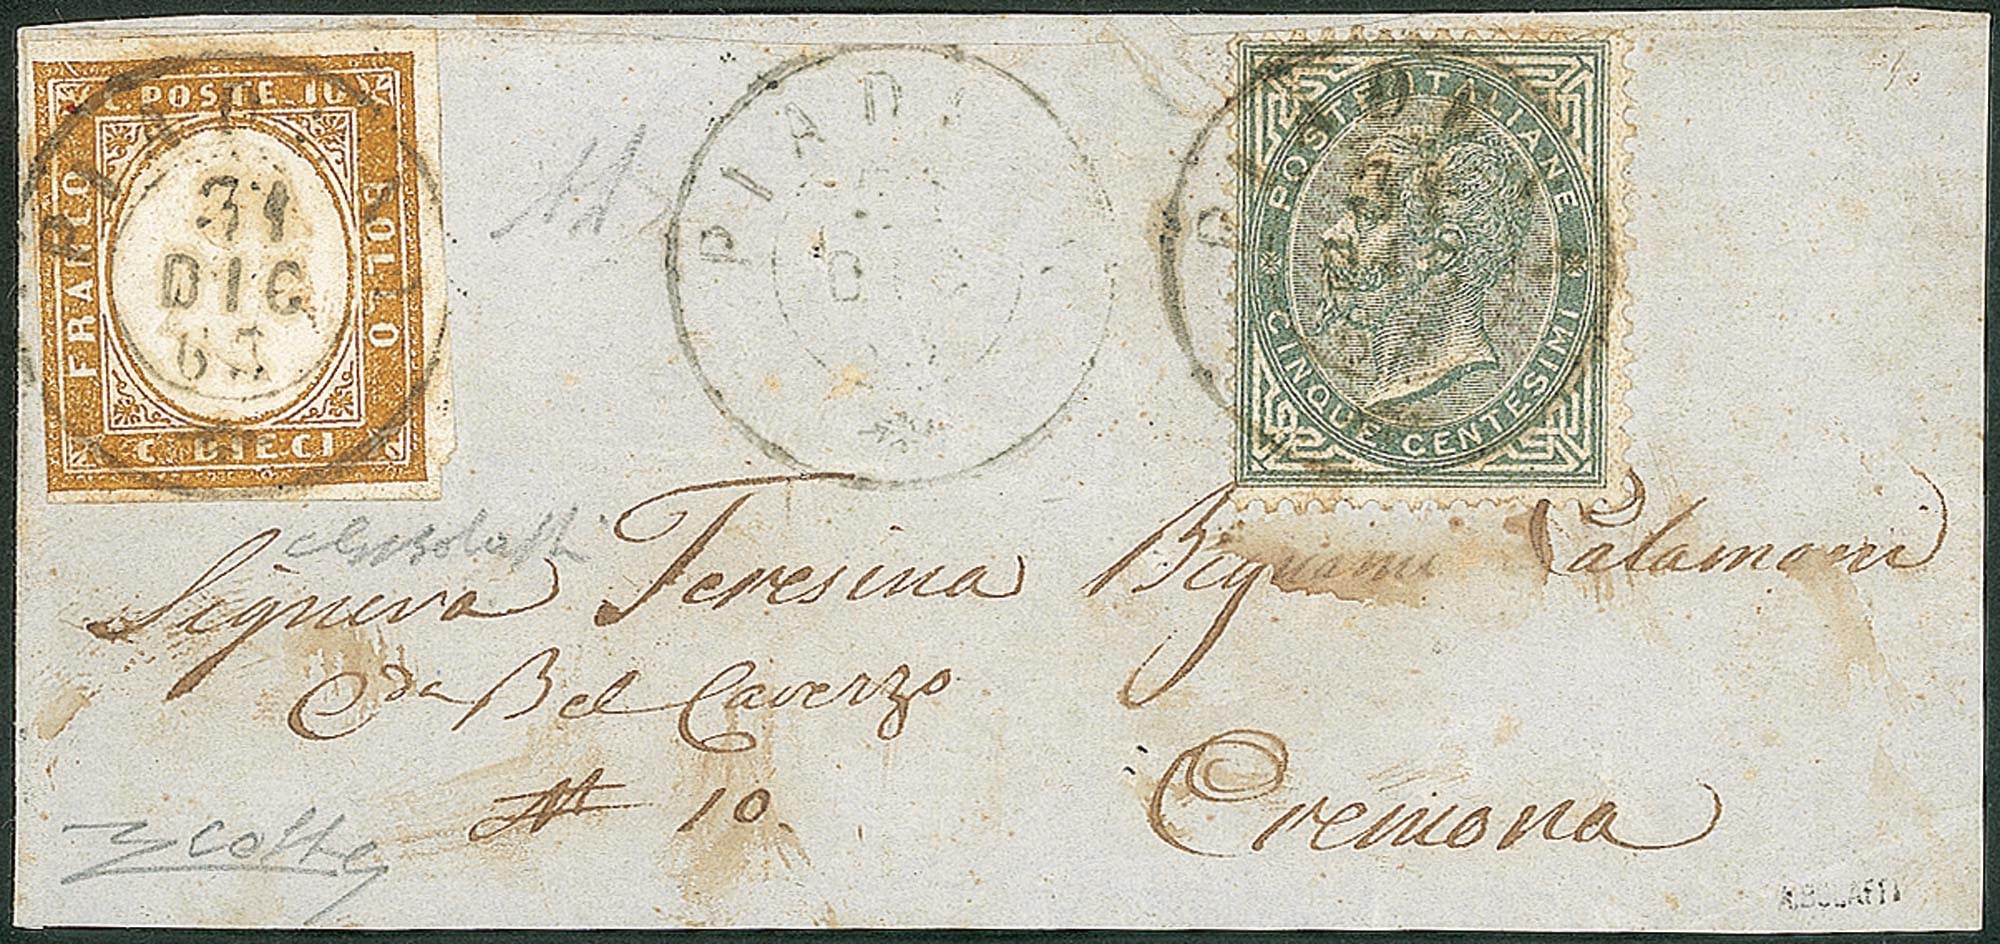 C. POSTE 10
FRANCO
BOLLO
C. DIECI
31
DIC
63
PIADE
DIC
POSTE ITALIANE
CINQUE CENTESIMI
Signora Teresina Bignami Calamani
Cda Bel Cavezzo
N 10
Cremona
A.BOLAFFI